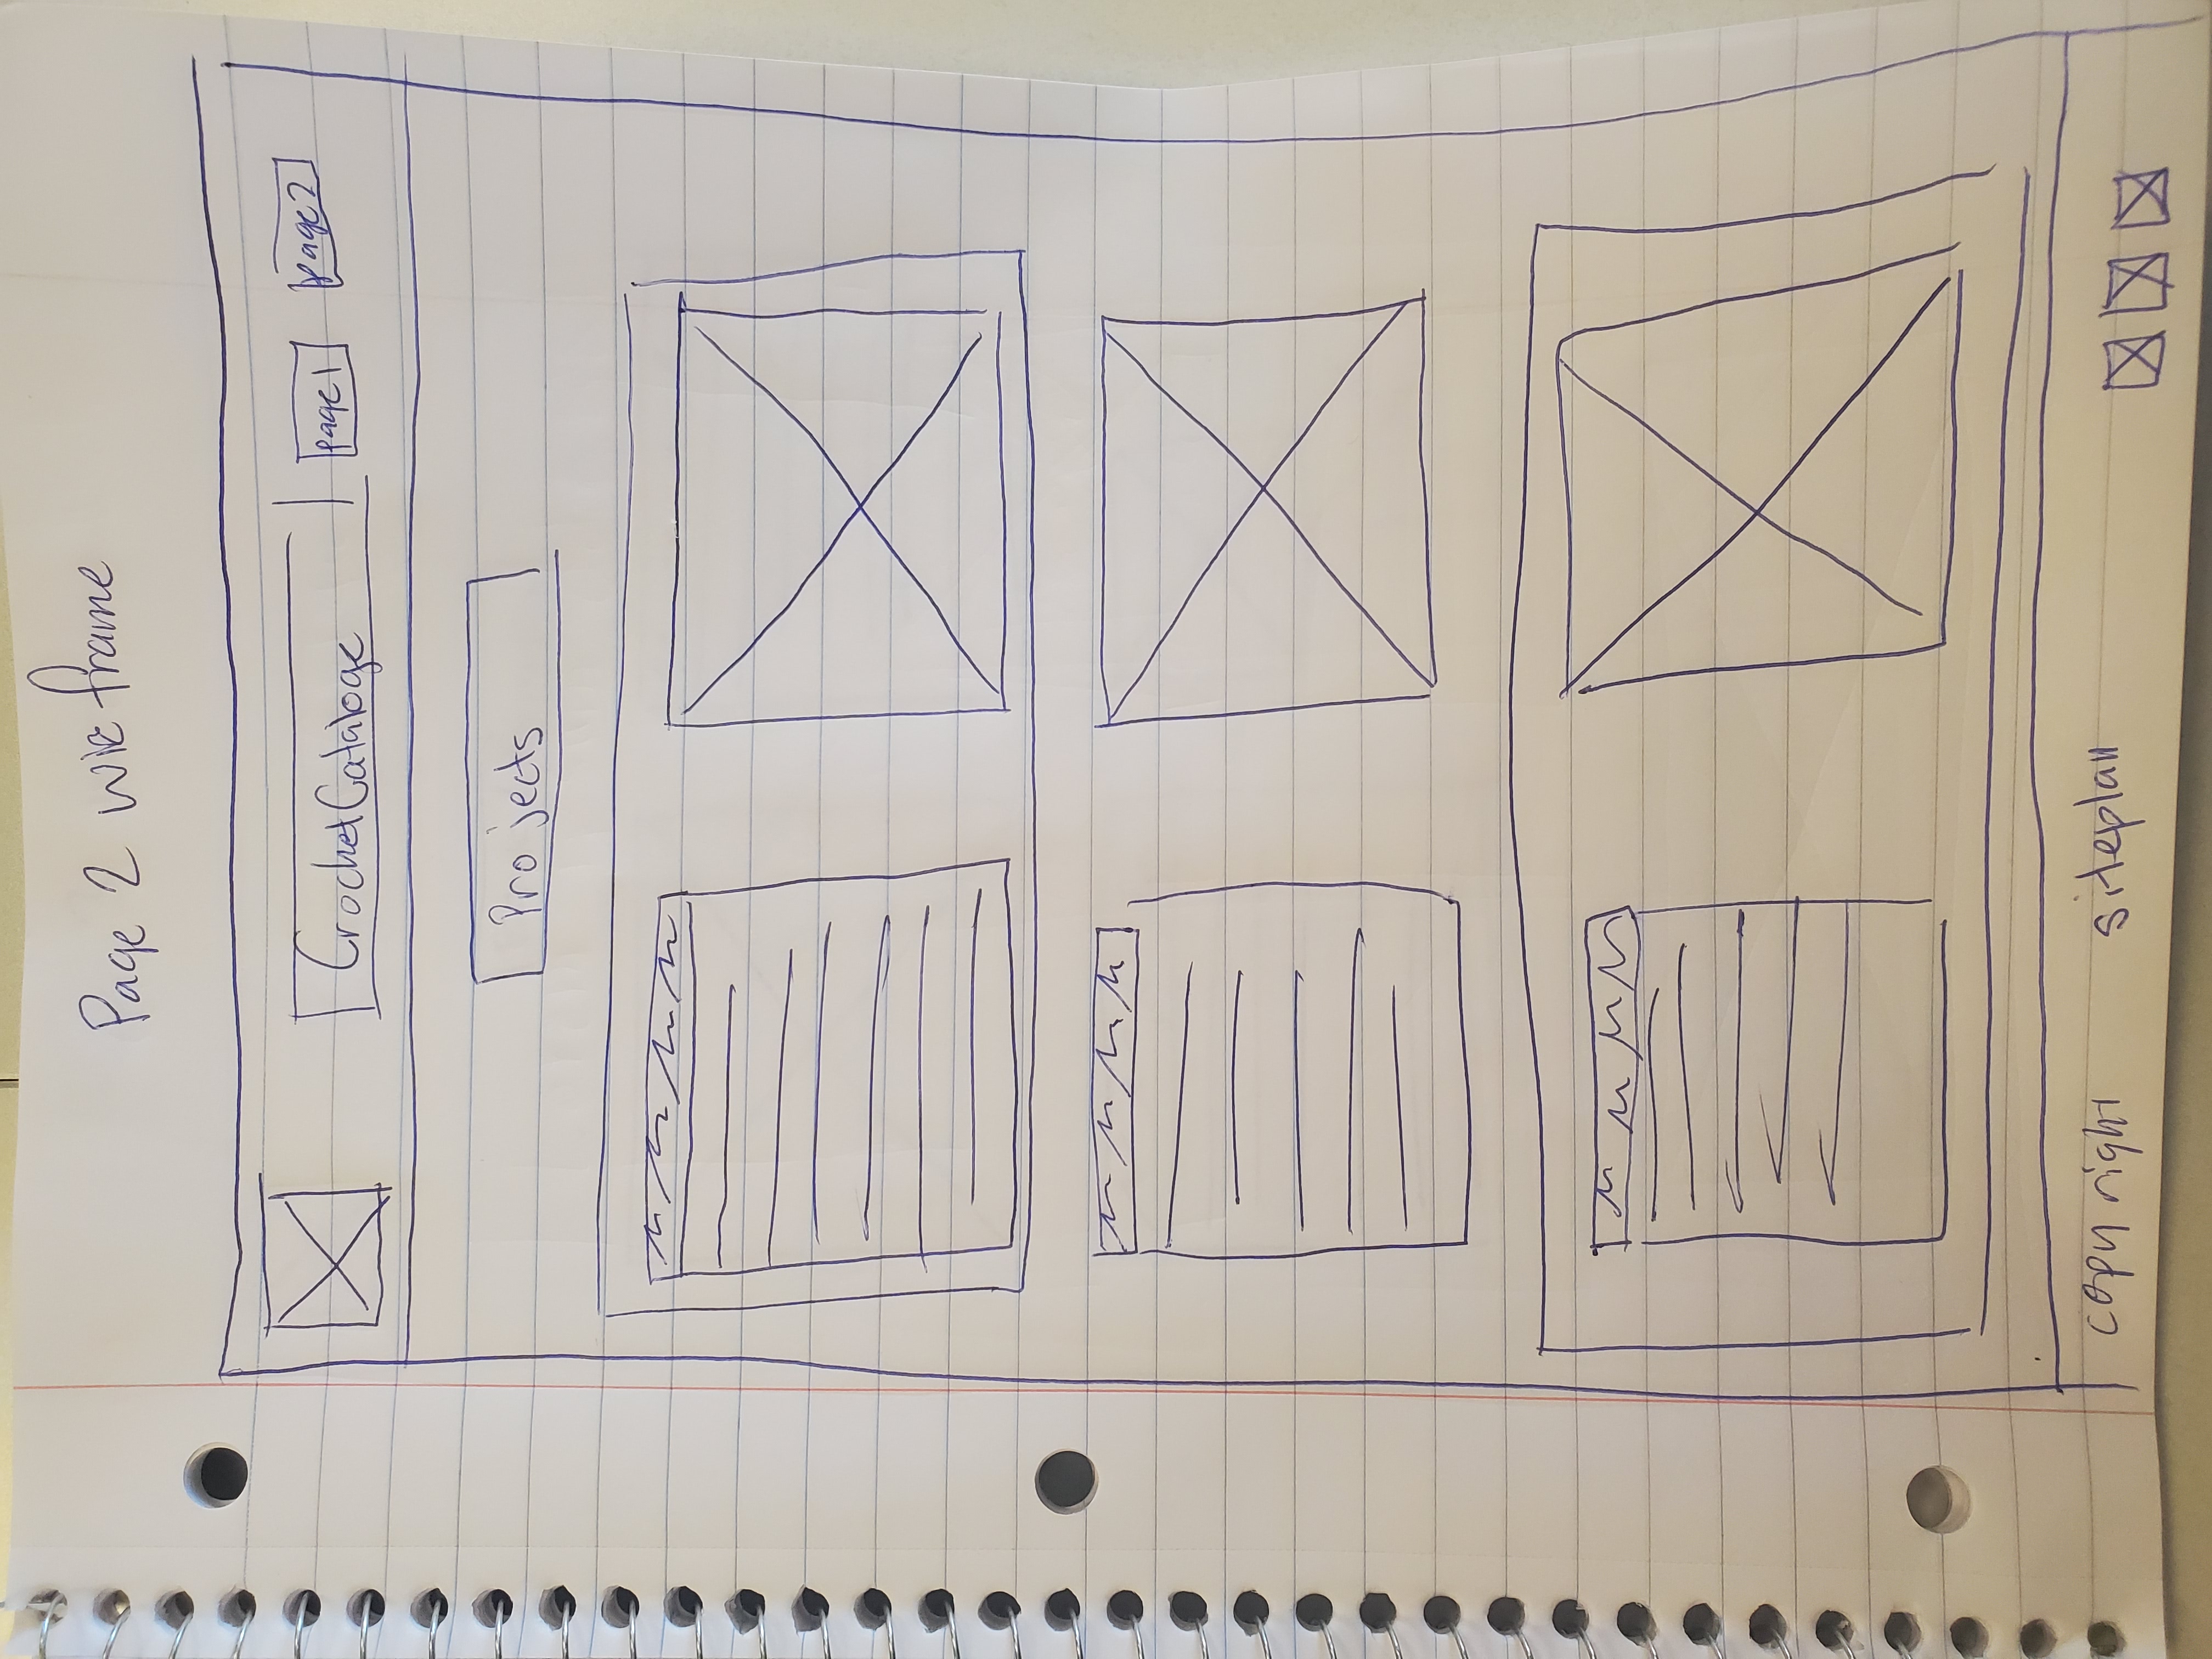 Page 2 wire frame
Crochet Cataloge page1 page2
Projects
copyright siteplan